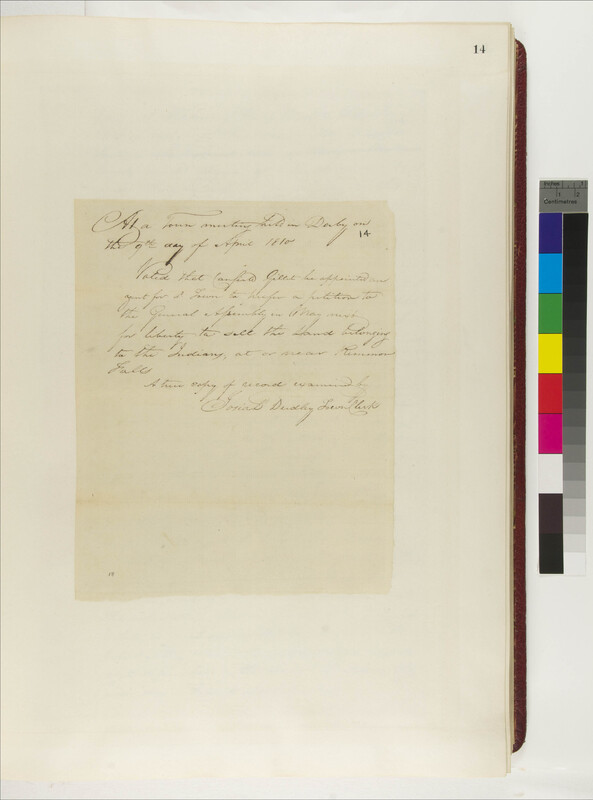 14
At a Town meeting held in Derby on
the 9th day of April 1810
14
Voted that Canfield Gillet be appointed an
agent for sd Town to prefer a petition to
the General Assembly in May next
for liberty to sell the Land belonging
to the Indians, at or near
Falls
A true copy of record examined by
Josiah Dudley Town Clerk
14
Inches 1 2
Centimetres